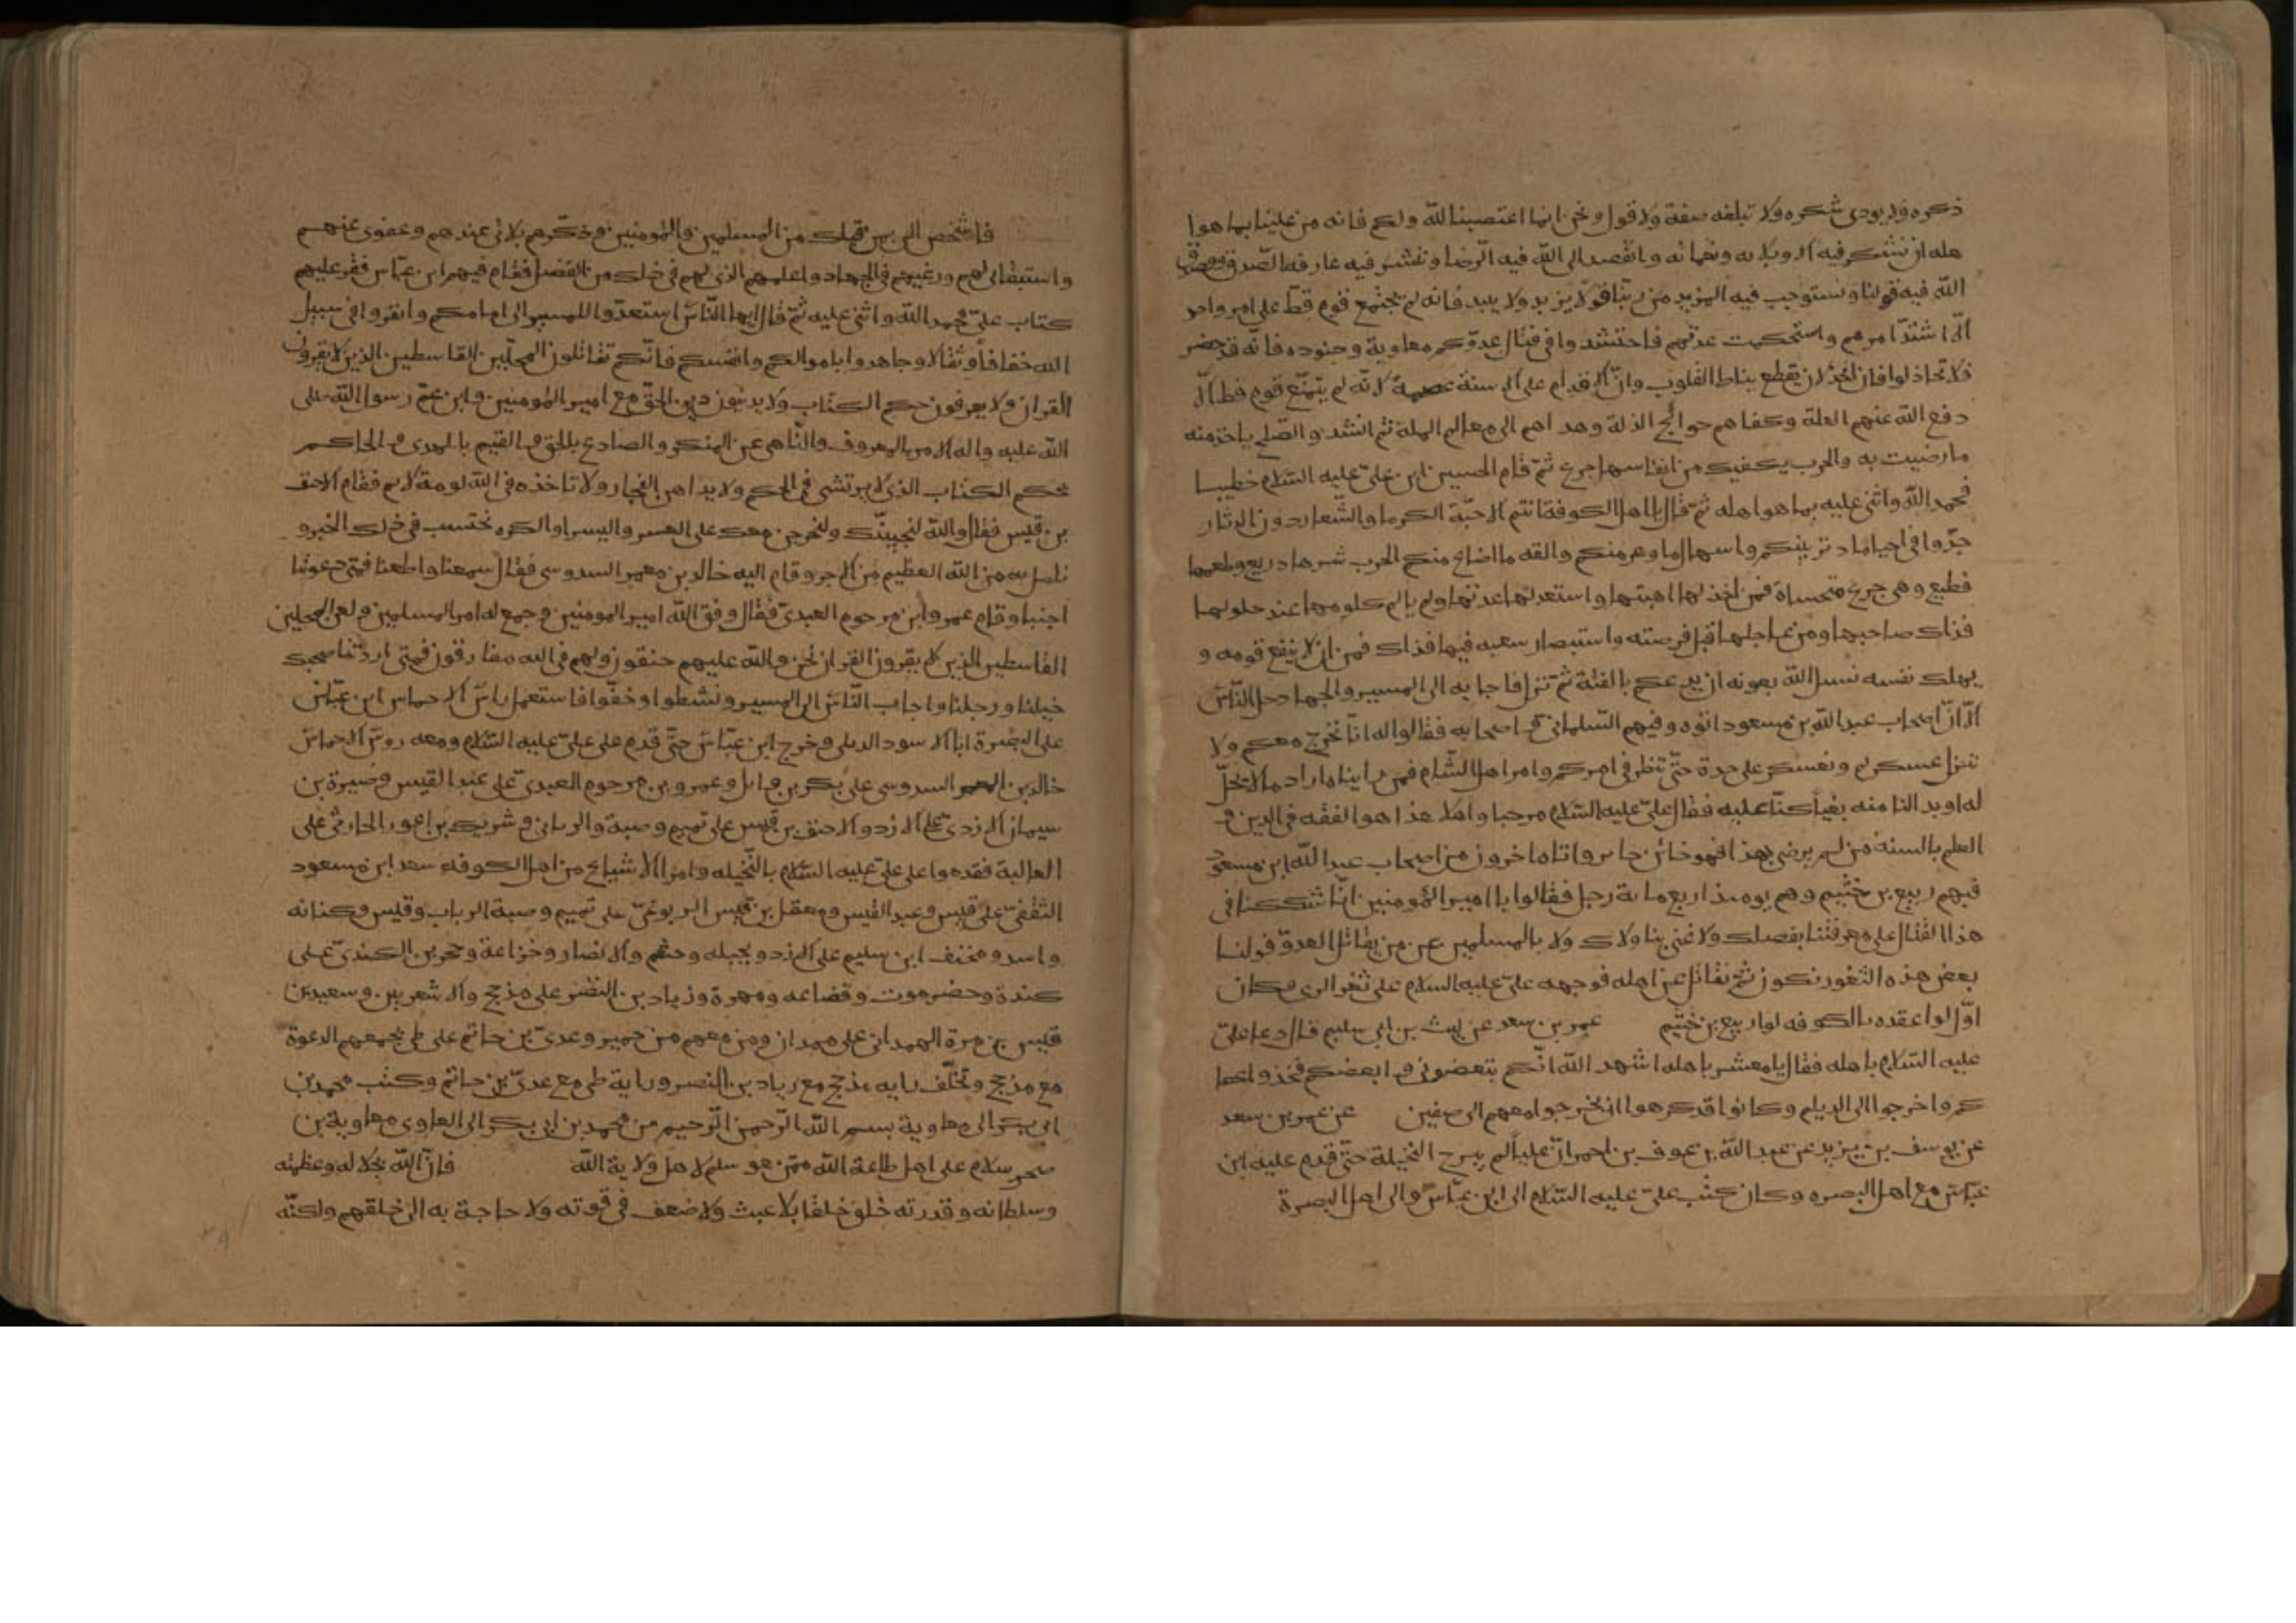 ذكره ولا يودى شكره ولا تبلغه صفة ولا قول ونحن انما اعتصبنا لله ولكم فانه من علينا بما هوا
هله ان نشكر فيه الاوه وبلاءه ونعمائه وانقصد الى الله فيه الرضا ونفشر فيه عارفه الصدق يصدق
الله فيه قولنا ونستوجب فيه المزيد من ربنا قولا يزيد ولا يبيد فانه لم يجتمع قوم قط على امر واحد
الا اشتد امرهم واستحكمت عدتهم فاحتشدوا فى قتال عدوكم معاوية وجنوده فانه قد حضر
فلا تخاذلوا فان الخذلان يقطع نياط القلوب وان الاقدام على الاسنة عصمة لانه لم يتمنع قوم قط الا
دفع الله عنهم العلة وكفاهم حوائج الذلة وهداهم الى معالم الملة ثم انشد والصلح ياخذ منه
ما رضيت به والحرب يكفيك من انفاسها جرع ثم قام الحسين ابن على عليه السلام خطيبا
فحمد الله واثنى عليه بما هو اهله ثم قال يا اهل الكوفة انتم الاحبة الكرما والشعار دون الدثار
جدوا فى احيا ما د ثر بينكم واسهال ما وعر منكم والفه ما اضاع منكم الحرب شرها ذريع وطعمها
فظيع وهى جرع متحساة فمن اخذ لها اهبتها واستعد لها عدتها ولم يالم كلومها عند حلولها
فذاك صاحبها ومن عاجلها قبل فرصته واستبصار سعيه فيها فذاك قمن ان لا ينفع قومه و
يهلك نفسه نسل الله بعونه ان يدعكم بالفئة ثم نزل فاجابه الى المسير والجهاد جل الناس
الا ان اصحاب عبد الله بن مسعود اتوه وفيهم السلمانى واصحابه فقالوا له انا نخرج معكم ولا
ننزل عسكركم ونعسكر على حدة حتى ننظر فى امركم وامر اهل الشام فمن راينا ه اراد ما لا يحل
له او بدا لنا منه بغيا كنا عليه فقال على عليه السلام مرحبا واهلا هذا هوا لفقه فى الدين و
العلم بالسنه من لم يرضى بهذا فهو خائن جابر واتاه اخرون من اصحاب عبد الله ابن مسعود
فيهم ربيع بن خثيم وهم يومئذ اربع ماية رجل فقالوا يا امير المؤمنين انا شككنا فى
هذا القتال على معرفتنا بفضلك ولا غنى بنا ولا ك ولا بالمسلمين عن من يقاتل العدو فولنا
بعض هذه الثغور نكون ثم نقاتل عن اهله فوجهه على عليه السلام على ثغر الرى فكان
اول لوا عقده بالكوفه لوا ربيع بن خثيم عمر بن سعد عن ليث بن ابى سليم قال دعا على
عليه السلام باهله فقال يا معشر باهله اشهد الله انكم تبغضونى وابغضكم فخذوا عطا
كم واخرجوا الى الديلم وكانوا قد كرهوا ان يخرجوا معهم الى صفين عن عمر بن سعد
عن يوسف بن يزيد عن عبد الله بن عوف بن احمر ان عليا لم يبرح النخيلة حتى قدم عليه ابن
عباس مع اهل البصره وكان كتب على عليه السلام الى ابن عباس والى اهل البصرة
فاشخص الى بمن قبلك من المسلمين والمؤمنين وذكرهم بلائى عندهم وعفوى عنهم
واستبقائى لهم ورغبهم فى الجهاد واعلمهم الذى لهم فى ذلك من الفضل فقام فيهم ابن عباس فقر عليهم
كتاب على فحمد الله واثنى عليه ثم قال ايها الناس استعدوا للمسير الى امامكم وانفروا فى سبيل
الله خفافا وثقالا وجاهدوا باموالكم وانفسكم فانكم تقاتلون المحلين القاسطين الذين لا يقرون
القران ولا يعرفون حكم الكتاب ولا يدينون دين الحق مع امير المؤمنين وابن عم رسول الله صلى
الله عليه واله الامر بالمعروف والناهى عن المنكر والصادع بالحق والقيم بالهدى والحاكم
بحكم الكتاب الذى لا يرتشى فى الحكم ولا يداهن الفجار ولا تاخذه فى الله لومة لايم فقام الاحنف
بن قيس فقال والله لنجيبنك ولنخرجن معك على العسر واليسر او الكره نحتسب فى ذلك الخير و
نامل به من الله العظيم من الاجر وقام اليه خالد بن معمر السدوسى فقال سمعنا واطعنا فمتى دعوتنا
اجبنا وقام عمر وابن مرحوم العبدى فقال وفق الله امير المومنين وجمع له امر المسلمين ولعن المحلين
القاسطين الذين لا يقرون القران نحن والله عليهم حنقون ولهم فى الله مفارقون فمتى اردتنا صحبك
خيلنا ورجلنا واجاب الناس الى المسير ونشطوا وخفوا فاستعمل باس الاحماس ابن عباس
على البصرة ابا الاسود الدملى وخرج ابن عباس حتى قدم على على عليه السلام ومعه روس الاخماس
خالد بن المعمر السدوسى على بكر بن وايل وعمرو بن مرحوم العبدى على عبد القيس وصبرة بن
سيمان الازدى على الازد والاحنف بن قيس على تميم وضبة والرباب وشريك بن اعور الحارثى على
العالية فقدموا على على عليه السلام بالنخيله وامر الاشياع من اهل الكوفه سعد ابن مسعود
الثقفى على قيس وعبد القيس ومعقل بن قيس اليربوعى على تميم وضبة الرباب وقيس وكنانه
واسد ومخنف ابن سليم على الازد وبجيله وخثعم والانصار وخزاعة وحجر بن الكندى على
كندة وحضرموت وقضاعه ومهرة وزياد بن النضر على مذحج والاشعريين وسعيد بن
قيس بن مرة الهمدانى على همدان ومن معهم من حمير وعدى بن حاتم على طى يجمعهم الدعوة
مع مذحج وتخلف رايه مذحج مع زياد بن النضر وراية طى مع عدى بن حاتم وكتب محمد بن
ابى بكر الى معاوية بسم الله الرحمن الرحيم من محمد بن ابى بكر الى الغاوى معاوية بن
صخر سلام على اهل طاعة الله ممن هو سلم لاهل ولاية الله فان الله بجلاله وعظمته
وسلطانه وقدرته خلق خلقا بلا عبث ولا ضعف فى قوته ولا حاجة به الى خلقهم ولكنه